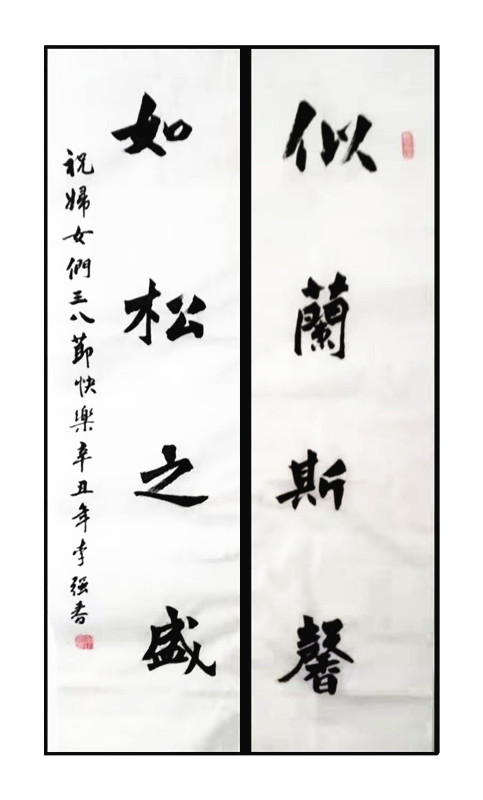 似蘭斯馨
如松之盛
祝婦女們三八節快樂辛丑年李強書